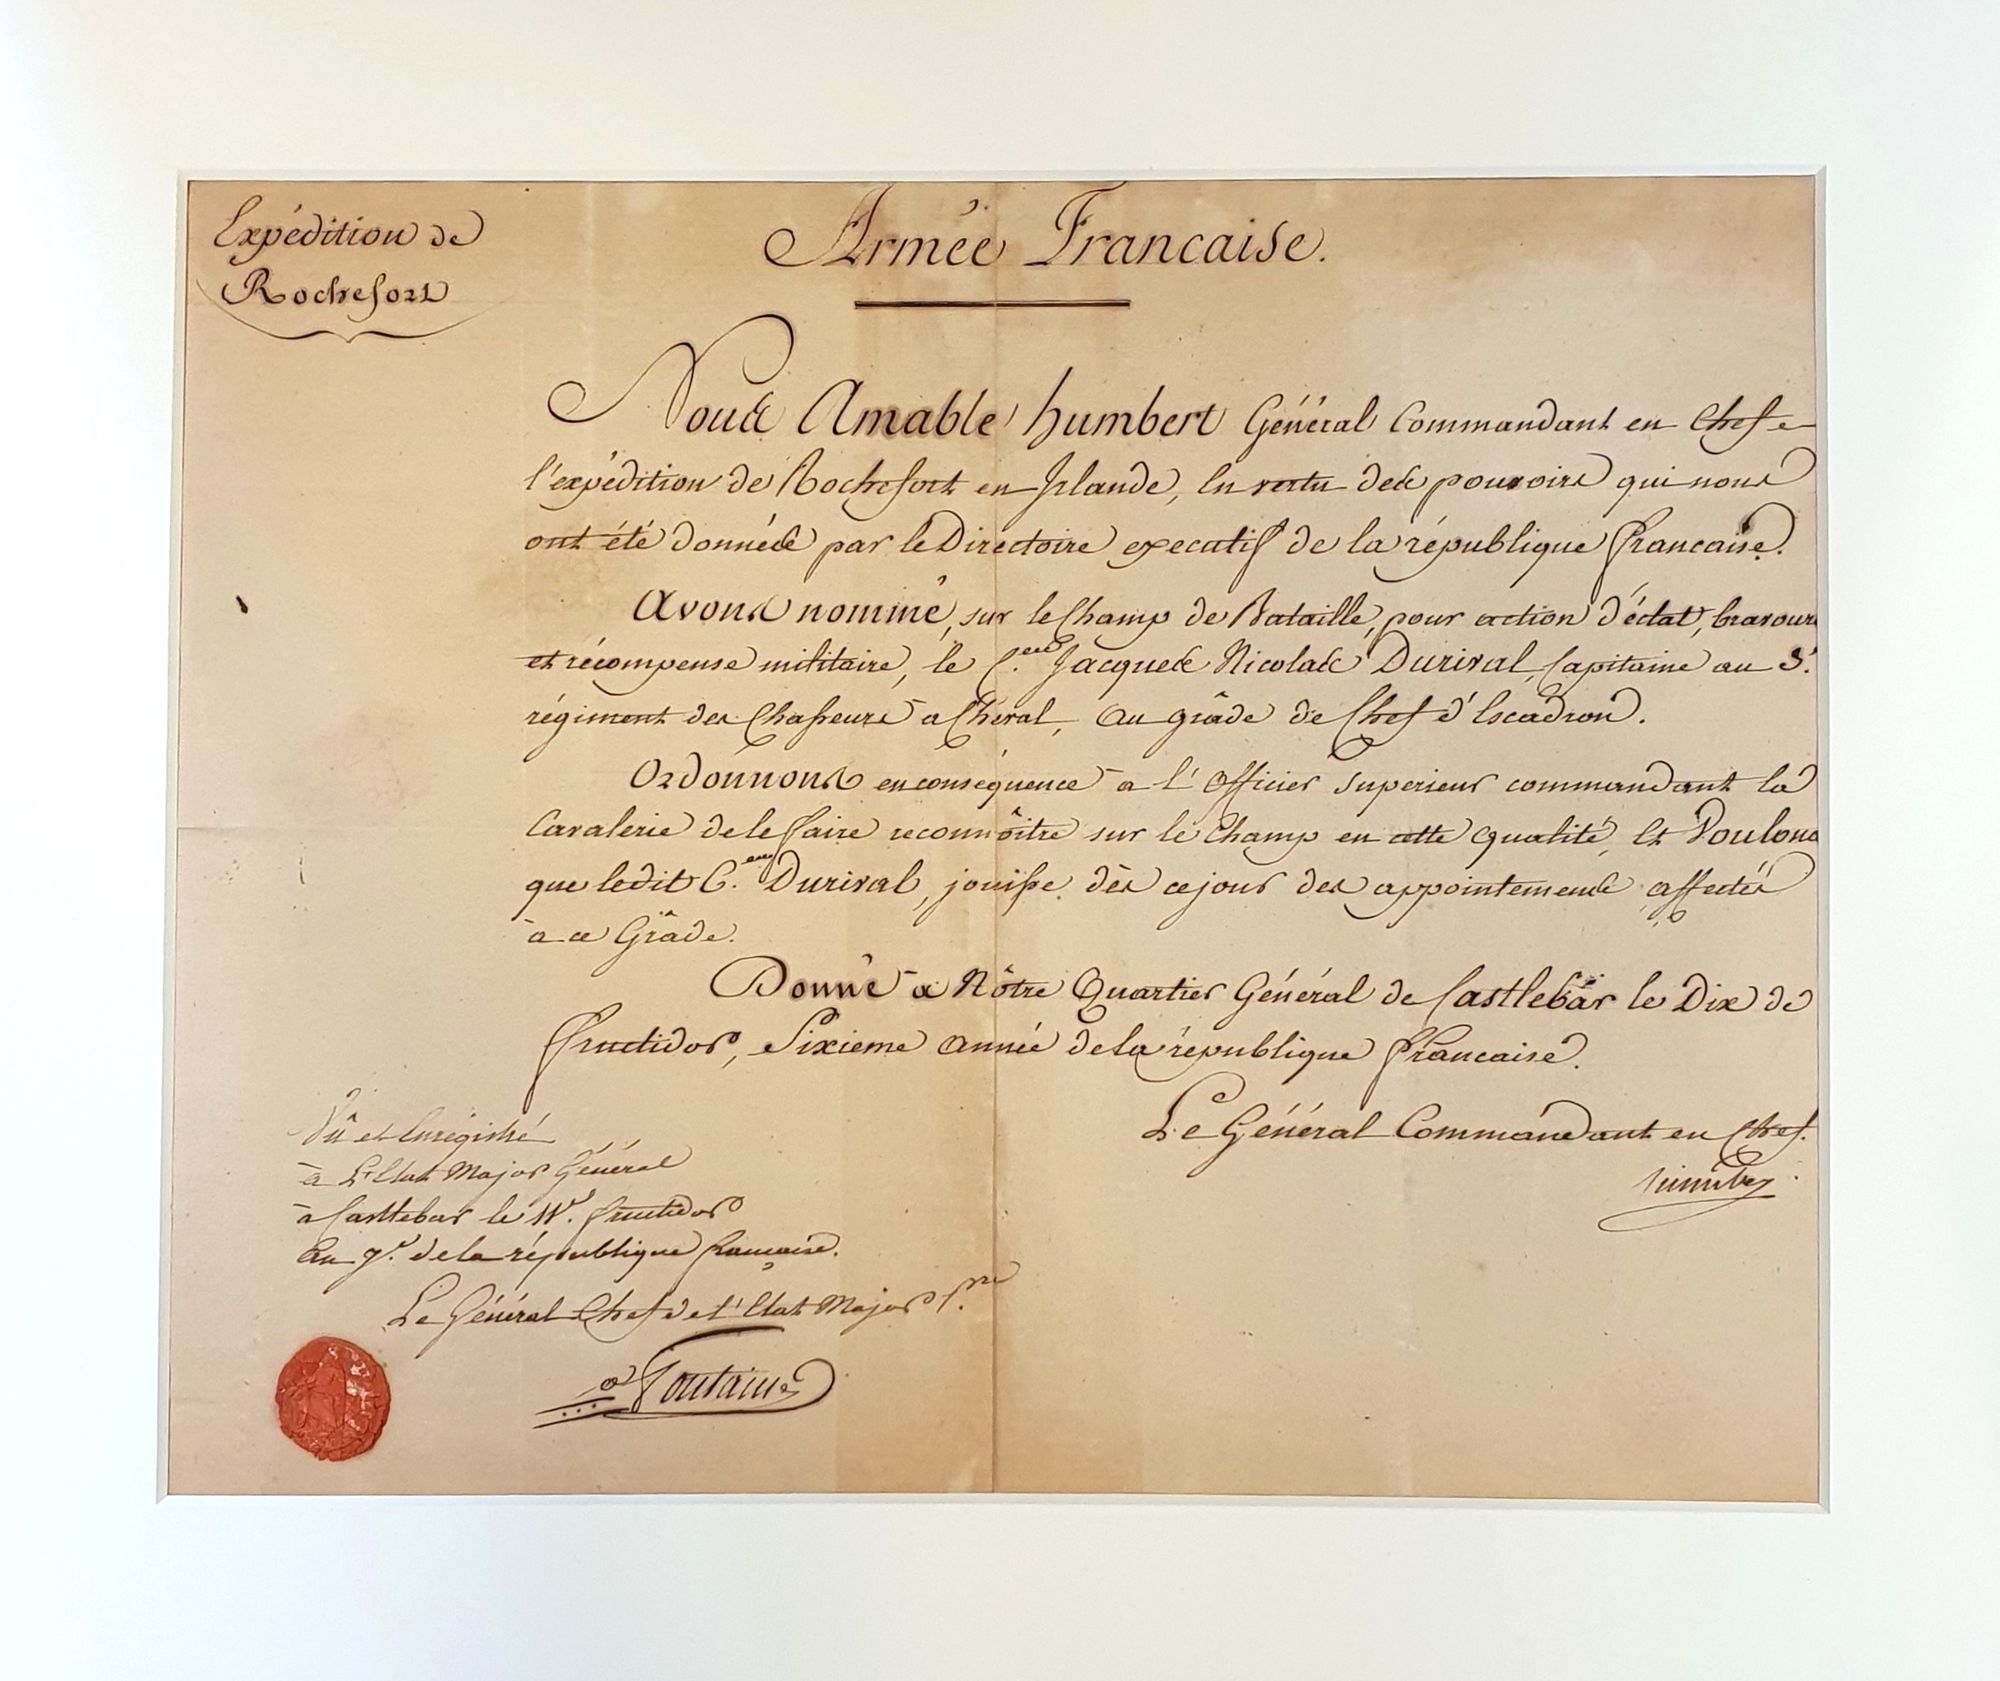 Expédition de
Rochefort
Armée Francaise.
Nous Amable humbert Général Commandant en Chef
l'expédition de Rochefort en Irlande, En vertu des pouvoirs qui nous
ont été donnéés par le Directoire executif de la république francaise.
Avons nommé, sur le Champ de Bataille, pour action d'éclat, bravoure
et récompense militaire, le C.en Jacques Nicolas Durival, Capitaine au 3.e
régiment des Chasseurs a Cheval, au grâde de Chef d'Escadron.
Ordonnons en conséquence a l'Officier superieur commandant la
Cavalerie de le faire reconnôitre sur le champ en cette qualité, Et Voulons
que le dit C.en Durival, jouisse dès ce jour des appointements affectés
à ce Grâde.
Donné a Nôtre Quartier Général de Castlebar le Dix de
fructidor, Sixieme année de la république francaise.
Le Général Commandant en Chef.
humbert
Vû et Enrégistré
à L'Etat Major Général
à Castlebar le 11. fructidor
an de la république française.
Le Général Chef de l'Etat Major
Fontaine